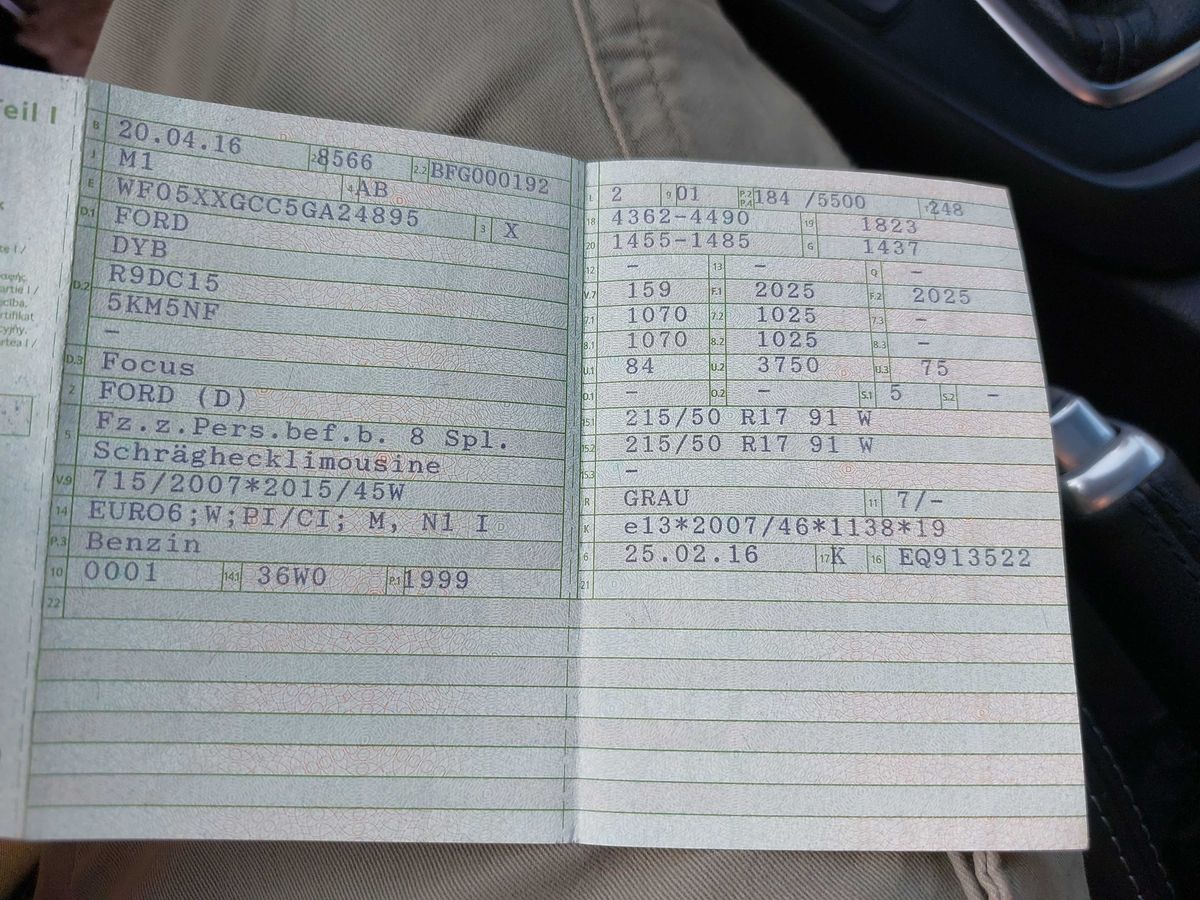 Teil I
B 20.04.16 2.1 8566 2.2 BFG000192
J M1 4 AB
E WF05XXGCC5GA24895 3 X
D.1 FORD
DYB
D.2 R9DC15
5KM5NF
–
D.3 Focus
2 FORD (D)
5 Fz.z.Pers.bef.b. 8 Spl.
Schräghecklimousine
V.9 715/2007*2015/45W
14 EURO6;W;PI/CI; M, N1 I
P.3 Benzin
10 0001 14.1 36W0 P.1 1999
22
L 2 9 01 P.2 P.4 184 /5500 T 248
18 4362-4490 19 1823
20 1455-1485 G 1437
12 – 13 – Q –
V.7 159 F.1 2025 F.2 2025
7.1 1070 7.2 1025 7.3 –
8.1 1070 8.2 1025 8.3 –
U.1 84 U.2 3750 U.3 75
O.1 – O.2 – S.1 5 S.2 –
15.1 215/50 R17 91 W
15.2 215/50 R17 91 W
15.3 –
R GRAU 11 7/-
K e13*2007/46*1138*19
6 25.02.16 17 K 16 EQ913522
21